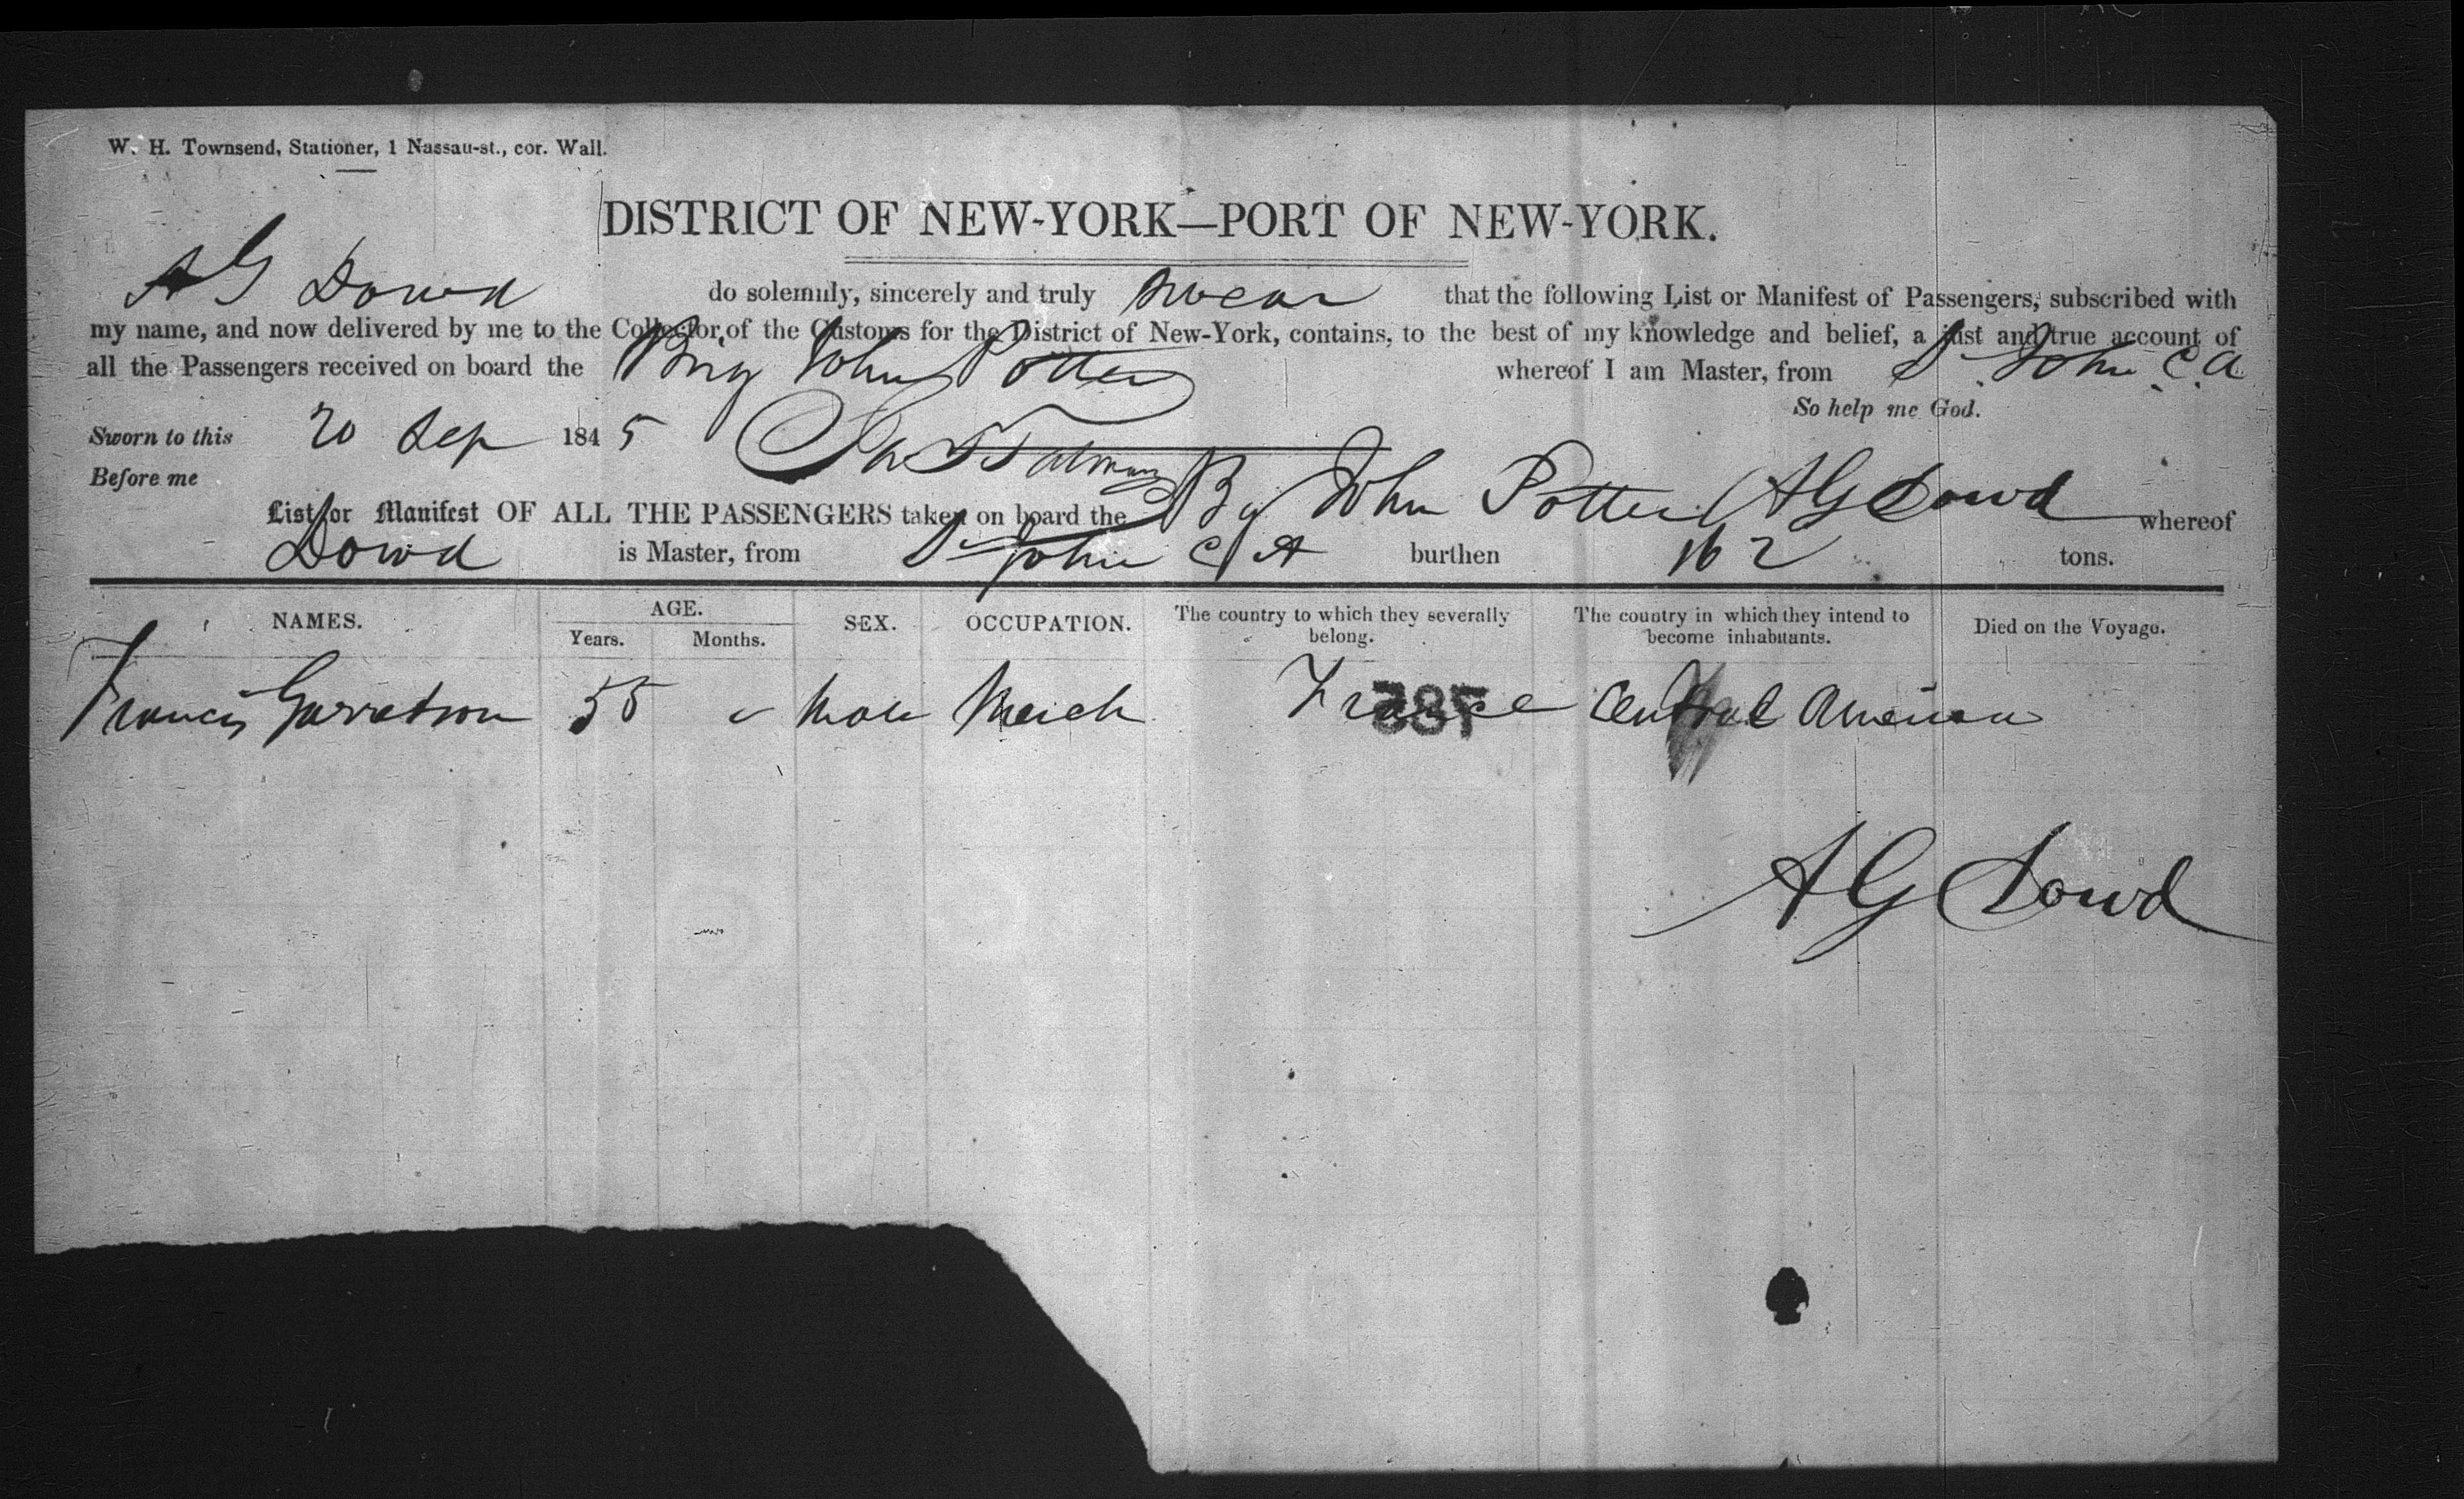 W. H. Townsend, Stationer, 1 Nassau-st., cor. Wall.
DISTRICT OF NEW-YORK—PORT OF NEW-YORK.
A G Dowd do solemnly, sincerely and truly swear that the following List or Manifest of Passengers, subscribed with
my name, and now delivered by me to the Collector of the Customs for the District of New-York, contains, to the best of my knowledge and belief, a just and true account of
all the Passengers received on board the Brig John Potter whereof I am Master, from St John C.A.
So help me God.
Sworn to this 20 Sep 1845
Before me
List or Manifest OF ALL THE PASSENGERS taken on board the Bg John Potter A G Dowd whereof
Dowd is Master, from St John C A burthen 162 tons.
NAMES. AGE. SEX. OCCUPATION. The country to which they severally belong. The country in which they intend to become inhabitants. Died on the Voyage.
Years. Months.
Francis Garretson 55 Male Merch France Central America
785
A G Dowd